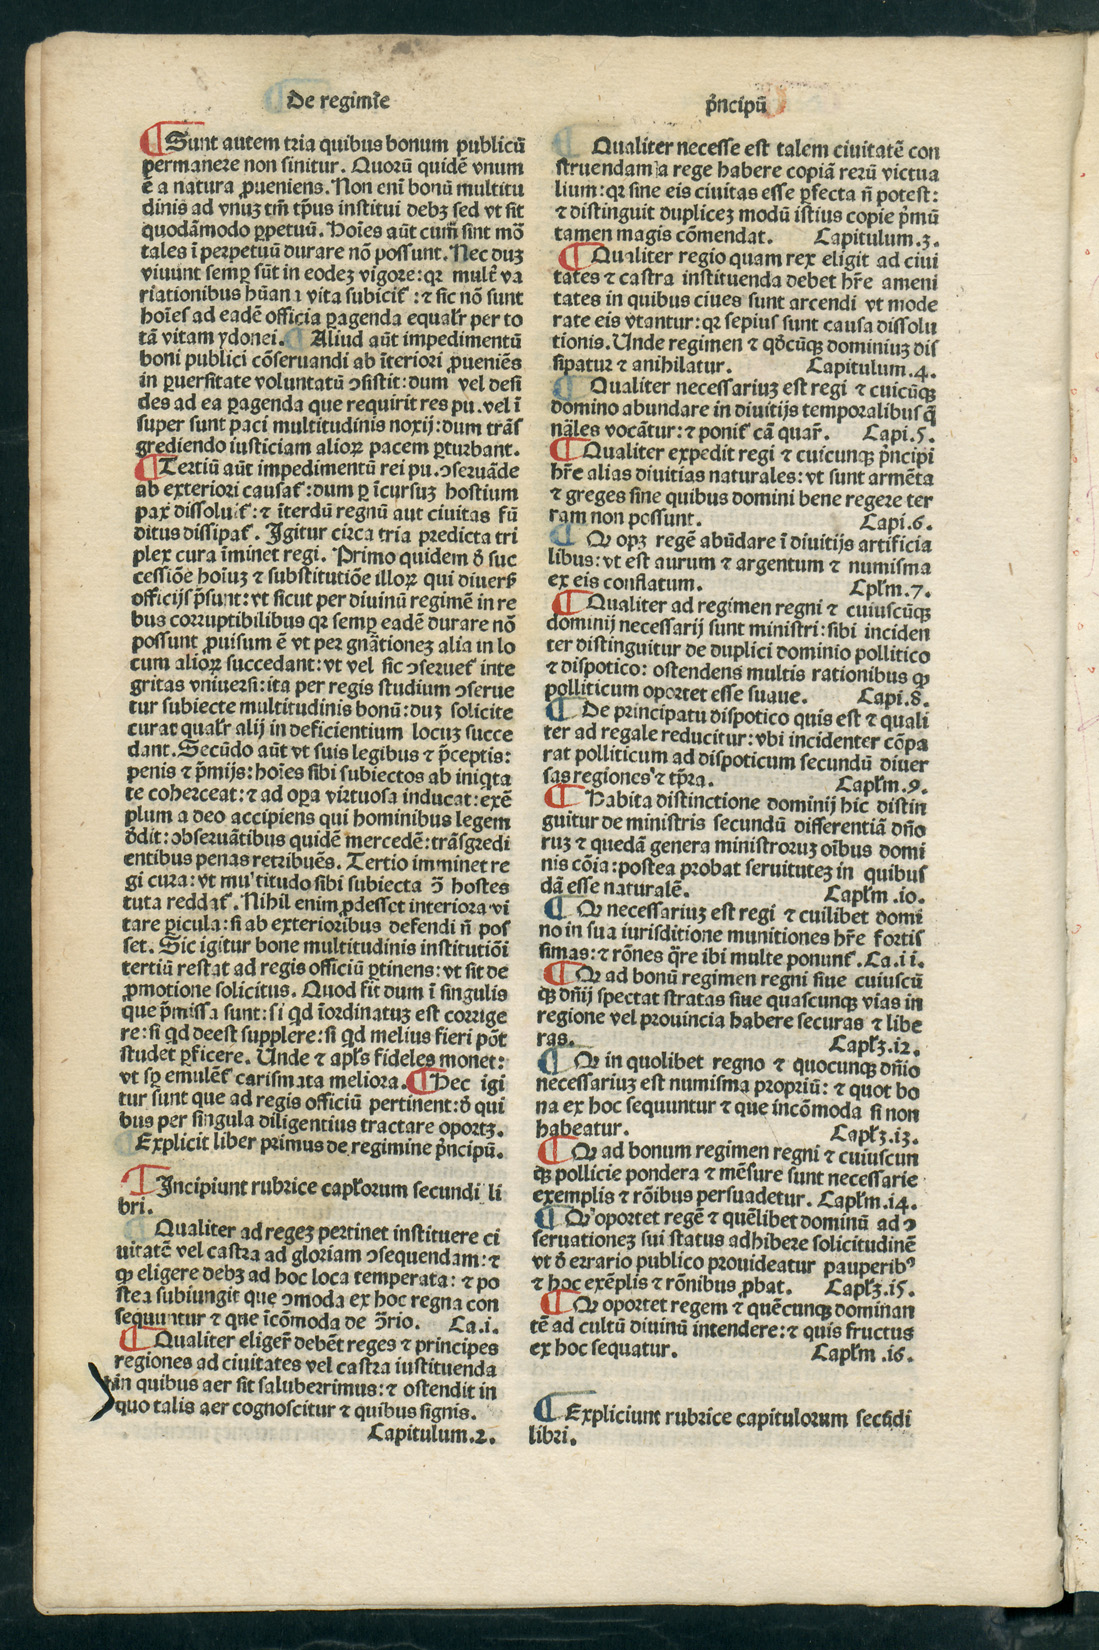 De regimīe
pͥncipū
Sunt autem tria quibus bonum publicū
permanere non sinitur. Quorū quidē vnum
ē a natura ꝓueniens. Non enī bonū multitu
dinis ad vnuꝫ tm̄ tp̄us institui debꝫ sed vt sit
quodāmodo ꝑpetuū. Hoīes aūt cum̄ sint mō
tales ī perpetuū durare nō possunt. Nec duꝫ
viuunt semꝑ sūt in eodeꝫ vigore: qꝛ mult̄ va
riationibus hūana vita subicit̄ : ⁊ sic nō sunt
hoīes ad eadē officia ꝑagenda equalr̄ per to
tā vitam ydonei. Aliud aūt impedimentū
boni publici cōseruandi ab īteriori ꝓueniēs
in ꝑuersitate voluntatū ↄsistit: dum vel desi
des ad ea ꝑagenda que requirit res pu. vel ī
super sunt paci multitudinis noxij: dum trās
grediendo iusticiam alioꝝ pacem ꝑturbant.
Tertiū aūt impedimentū rei pu. ↄseruāde
ab exteriori causat̄ : dum ꝑ īcursuꝫ hostium
pax dissoluit̄ : ⁊ īterdū regnū aut ciuitas fū
ditus dissipat̄. Igitur circa tria predicta tri
plex cura īminet regi. Primo quidem đ suc
cessiōe hoīuꝫ ⁊ substitutiōe illoꝝ qui diuers̄
officijs p̄sunt: vt sicut per diuinū regimē in re
bus corruptibilibus qꝛ semꝑ eadē durare nō
possunt ꝓuisum ē vt per gnātioneꝫ alia in lo
cum alioꝝ succedant: vt vel sic ↄseruet̄ inte
gritas vniuersi: ita per regis studium ↄserue
tur subiecte multitudinis bonū: duꝫ solicite
curat qualr̄ alij in deficientium locuꝫ succe
dant. Secūdo aūt vt suis legibus ⁊ p̄ceptis:
penis ⁊ p̄mijs: hoīes sibi subiectos ab iniq̇ta
te coherceat: ⁊ ad oꝑa virtuosa inducat: exē
plum a deo accipiens qui hominibus legem
đdit: obseruātibus quidē mercedē: trāsgredi
entibus penas retribuēs. Tertio imminet re
gi cura: vt multitudo sibi subiecta ↄ̄ hostes
tuta reddat̄. Nihil enim ꝓdesset interiora vi
tare ꝑicula: si ab exterioribus defendi n̄ pos
set. Sic igitur bone multitudinis institutiōi
tertiū restat ad regis officiū ꝑtinens: vt sit de
ꝓmotione solicitus. Quod fit dum ī singulis
que p̄missa sunt: si qd īordinatuꝫ est corrige
re: si qd deest supplere: si qd melius fieri pōt
studet ꝑficere. Unde ⁊ apl̄s fideles monet:
vt sꝑ emulēt̄ carismata meliora. Hec igi
tur sunt que ad regis officiū pertinent: đ qui
bus per singula diligentius tractare oportꝫ.
Explicit liber primus de regimine pͥncipū.
Incipiunt rubrice capl̄orum secundi li
bri.
Qualiter ad regeꝫ pertinet instituere ci
uitatē vel castra ad gloriam ↄsequendam: ⁊
ꝙ eligere debꝫ ad hoc loca temperata: ⁊ po
stea subiungit que ↄmoda ex hoc regna con
sequuntur ⁊ que īcōmoda de ↄ̄rio. Ca.i.
Qualiter eliger̄ debēt reges ⁊ principes
regiones ad ciuitates vel castra iustituenda
in quibus aer sit saluberrimus: ⁊ ostendit in
quo talis aer cognoscitur ⁊ quibus signis.
Capitulum.2.
Qualiter necesse est talem ciuitatē con
struendam a rege habere copiā rerū victua
lium: qꝛ sine eis ciuitas esse ꝑfecta n̄ potest:
⁊ distinguit dupliceꝫ modū istius copie pͥmū
tamen magis cōmendat. Capitulum.3.
Qualiter regio quam rex eligit ad ciui
tates ⁊ castra instituenda debet hr̄e ameni
tates in quibus ciues sunt arcendi vt mode
rate eis vtantur: qꝛ sepius sunt causa dissolu
tionis. Unde regimen ⁊ qđcūqꝫ dominiuꝫ dis
sipatur ⁊ anihilatur. Capitulum.4.
Qualiter necessariuꝫ est regi ⁊ cuicūqꝫ
domino abundare in diuitijs temporalibus q̄
nāles vocātur: ⁊ ponit̄ cā quar̄. Capi.5.
Qualiter expedit regi ⁊ cuicunqꝫ pͥncipi
hr̄e alias diuitias naturales: vt sunt armēta
⁊ greges sine quibus domini bene regere ter
ram non possunt. Capi.6.
Qꝛ opꝫ regē abūdare ī diuitijs artificia
libus: vt est aurum ⁊ argentum ⁊ numisma
ex eis conflatum. Cpl̄m.7.
Qualiter ad regimen regni ⁊ cuiuscūqꝫ
dominij necessarij sunt ministri: sibi inciden
ter distinguitur de duplici dominio pollitico
⁊ dispotico: ostendens multis rationibus ꝙ
polliticum oportet esse suaue. Capi.8.
De principatu dispotico quis est ⁊ quali
ter ad regale reducitur: vbi incidenter cōpa
rat polliticum ad dispoticum secundū diuer
sas regiones ⁊ tp̄ra. Capl̄m.9.
Habita distinctione dominij hic distin
guitur de ministris secundū differentiā dn̄o
ruꝫ ⁊ quedā genera ministroruꝫ oībus domi
nis cōia: postea probat seruituteꝫ in quibus
dā esse naturalē. Capl̄m.io.
Qꝛ necessariuꝫ est regi ⁊ cuilibet domi
no in sua iurisditione munitiones hr̄e fortis
simas: ⁊ rōnes q̄re ibi multe ponunt̄. Ca.ii.
Qꝛ ad bonū regimen regni siue cuiuscū
qꝫ dn̄ij spectat stratas siue quascunqꝫ vias in
regione vel prouincia habere securas ⁊ libe
ras. Capl̄ꝫ.i2.
Qꝛ in quolibet regno ⁊ quocunqꝫ dn̄io
necessariuꝫ est numisma propriū: ⁊ quot bo
na ex hoc sequuntur ⁊ que incōmoda si non
habeatur. Capl̄ꝫ.i3.
Qꝛ ad bonum regimen regni ⁊ cuiuscun
qꝫ pollicie pondera ⁊ mēsure sunt necessarie
exemplis ⁊ rōibus persuadetur. Capl̄m.i4.
Qꝛ oportet regē ⁊ quēlibet dominū ad ↄ
seruationeꝫ sui status adhibere solicitudinē
vt đ errario publico prouideatur pauperibꝰ
⁊ hoc exēplis ⁊ rōnibus ꝓbat. Capl̄ꝫ.i5.
Qꝛ oportet regem ⁊ quēcunqꝫ dominan
tē ad cultū diuinū intendere: ⁊ quis fructus
ex hoc sequatur. Capl̄m.i6.
Expliciunt rubrice capitulorum secūdi
libri.